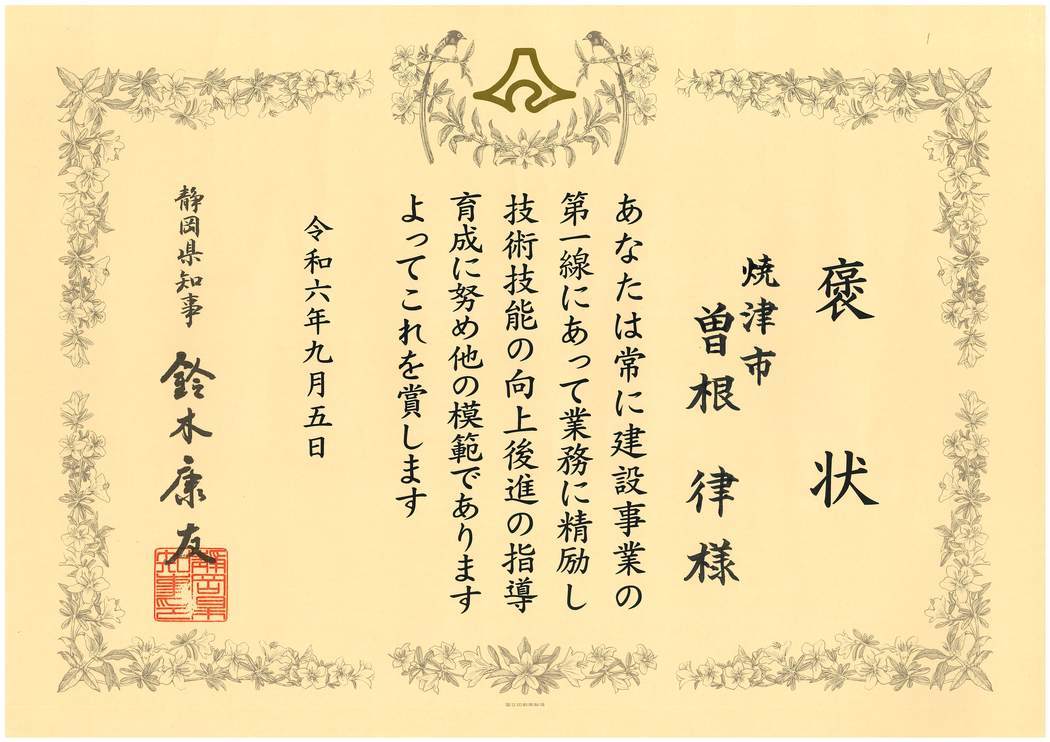 褒状
焼津市
曽根 律様
あなたは常に建設事業の
第一線にあって業務に精励し
技術技能の向上後進の指導
育成に努め他の模範であります
よってこれを賞します
令和六年九月五日
静岡県知事 鈴木康友
静岡県知事之印